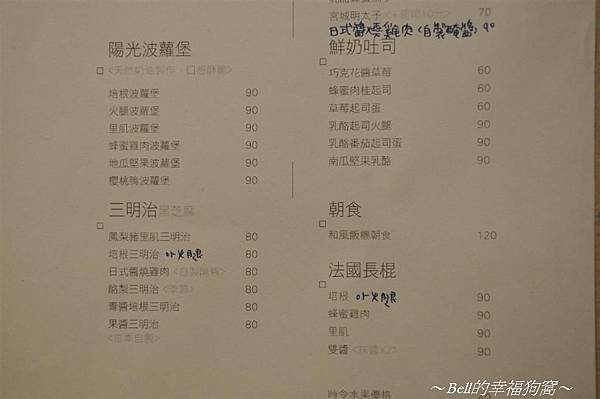 陽光波蘿堡
<天然奶油製作，口感酥脆>
培根波蘿堡 90
火腿波蘿堡 90
里肌波蘿堡 90
蜂蜜雞肉波蘿堡 90
地瓜堅果波蘿堡 90
櫻桃鴨波蘿堡 90
三明治 黑芝麻
鳳梨豬里肌三明治 80
培根三明治 or火腿 80
日式醬燒雞肉 <自製醃醬> 80
酪梨三明治 <季節> 80
青醬培根三明治 80
果醬三明治 80
<當季自製>
宮城明太子 <+起司10元> 70
日式醬燒雞肉<自製醃醬> 90
鮮奶吐司
巧克花醬草莓 60
蜂蜜肉桂起司 60
草莓起司蛋 60
乳酪起司火腿 90
乳酪番茄起司蛋 90
南瓜堅果乳酪 90
朝食
和風飯糰朝食 120
法國長棍
培根 or火腿 90
蜂蜜雞肉 90
里肌 90
雙醬 <抹醬X2> 90
時令水果優格
～Bell的幸福狗窩～